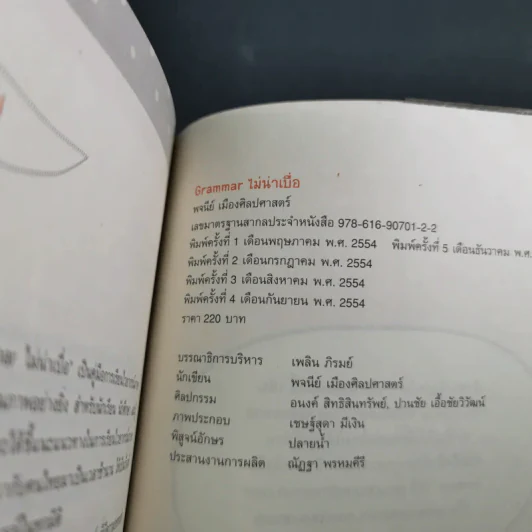 Grammar ไม่น่าเบื่อ
พจนีย์ เมืองศิลปศาสตร์
เลขมาตรฐานสากลประจำหนังสือ 978-616-90701-2-2
พิมพ์ครั้งที่ 1 เดือนพฤษภาคม พ.ศ. 2554 พิมพ์ครั้งที่ 5 เดือนธันวาคม พ.ศ.
พิมพ์ครั้งที่ 2 เดือนกรกฎาคม พ.ศ. 2554
พิมพ์ครั้งที่ 3 เดือนสิงหาคม พ.ศ. 2554
พิมพ์ครั้งที่ 4 เดือนกันยายน พ.ศ. 2554
ราคา 220 บาท
บรรณาธิการบริหาร เพลิน ภิรมย์
นักเขียน พจนีย์ เมืองศิลปศาสตร์
ศิลปกรรม อนงค์ สิทธิสินทรัพย์, ปานชัย เอื้อชัยวิวัฒน์
ภาพประกอบ เชษฐ์สุดา มีเงิน
พิสูจน์อักษร ปลายน้ำ
ประสานงานการผลิต ณัฏฐา พรหมคีรี
ไม่น่าเบื่อ" เป็นคู่มือการเรียน
สำหรับนักเรียน